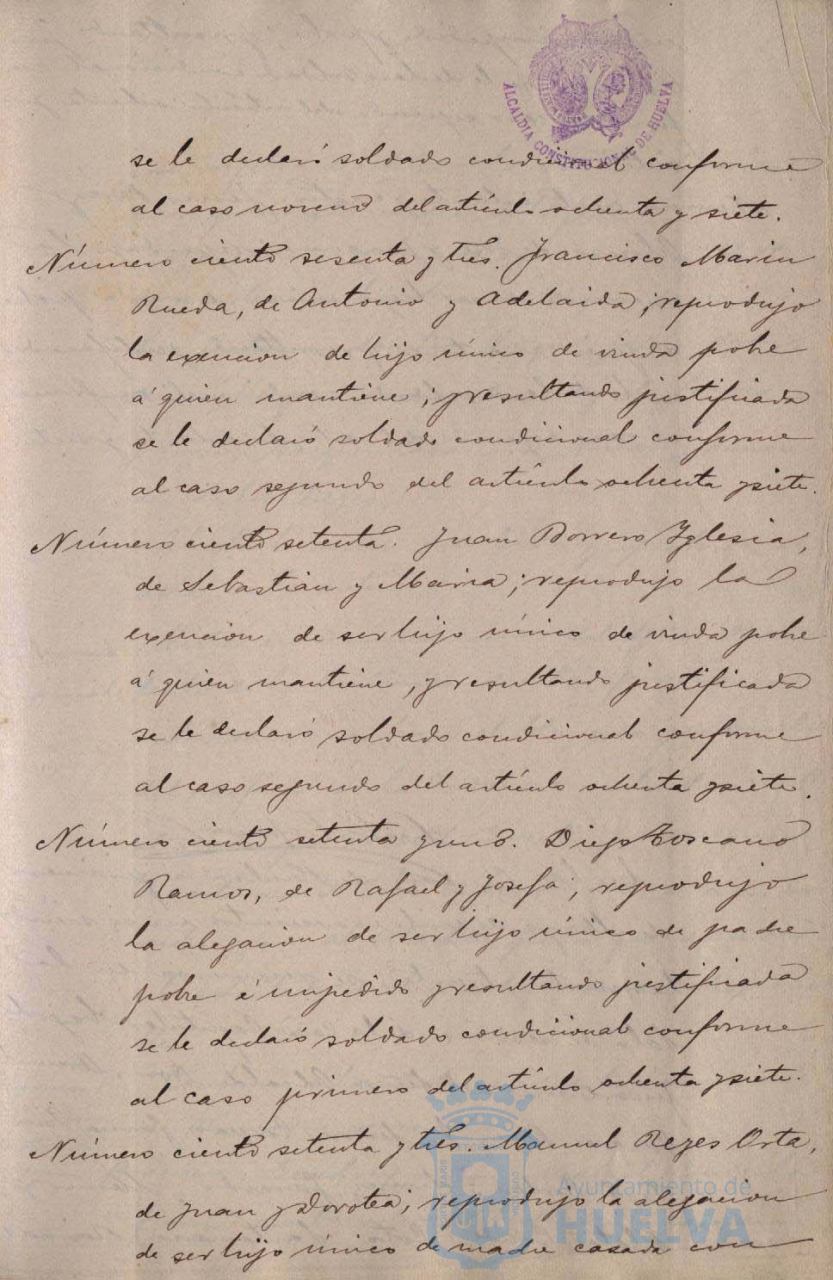 ALCALDIA CONSTITUCIONAL DE HUELVA
se le declaró soldado condicional conforme
al caso noveno del artículo ochenta y siete.
Número ciento sesenta y tres. Francisco Marin
Rueda, de Antonio y Adelaida; reprodujo
la exencion de hijo único de viuda pobre
á quien mantiene; y resultando justificada
se le declaró soldado condicional conforme
al caso segundo del artículo ochenta y siete.
Número ciento setenta. Juan Borrero Yglesia,
de Sebastian y Maria; reprodujo la
exencion de ser hijo único de viuda pobre
á quien mantiene, y resultando justificada
se le declaró soldado condicional conforme
al caso segundo del artículo ochenta y siete.
Número ciento setenta y uno. Diego Toscano
Ramos, de Rafael y Josefa; reprodujo
la alegacion de ser hijo único de padre
pobre é impedido y resultando justificada
se le declaró soldado condicional conforme
al caso primero del artículo ochenta y siete.
Número ciento setenta y tres. Manuel Reyes Orta,
de Juan y Dorotea; reprodujo la alegacion
de ser hijo único de madre casada con
Ayuntamiento de
HUELVA